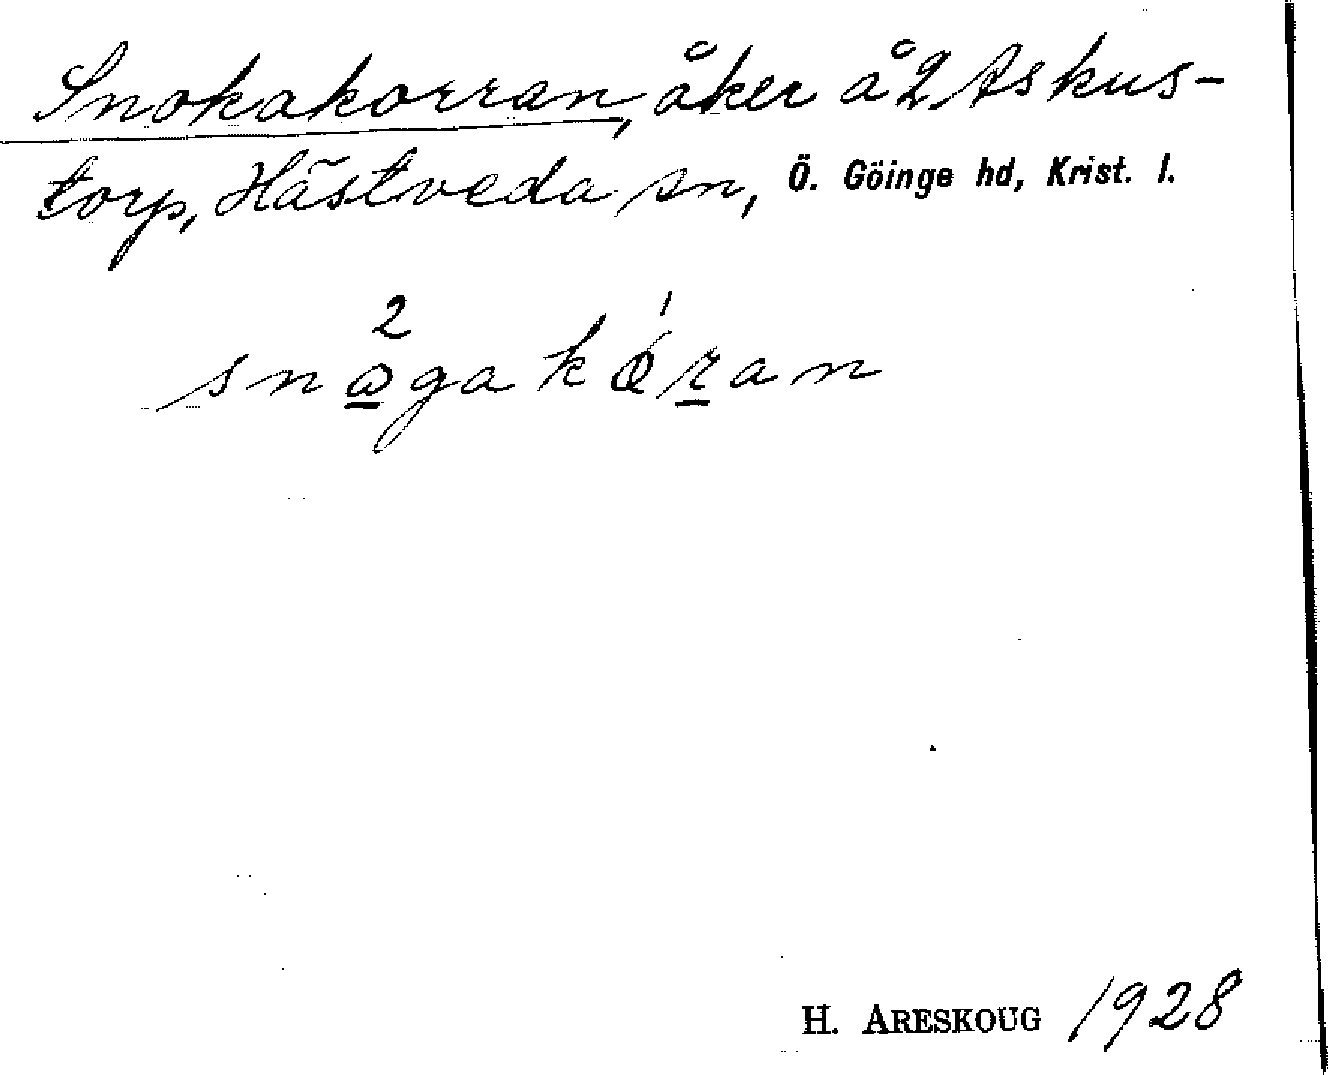 Snokakorran, åker å 2 Askus-
torp, Hästveda sn, Ö. Göinge hd, Krist. l.
2
H. ARESKOUG 1928